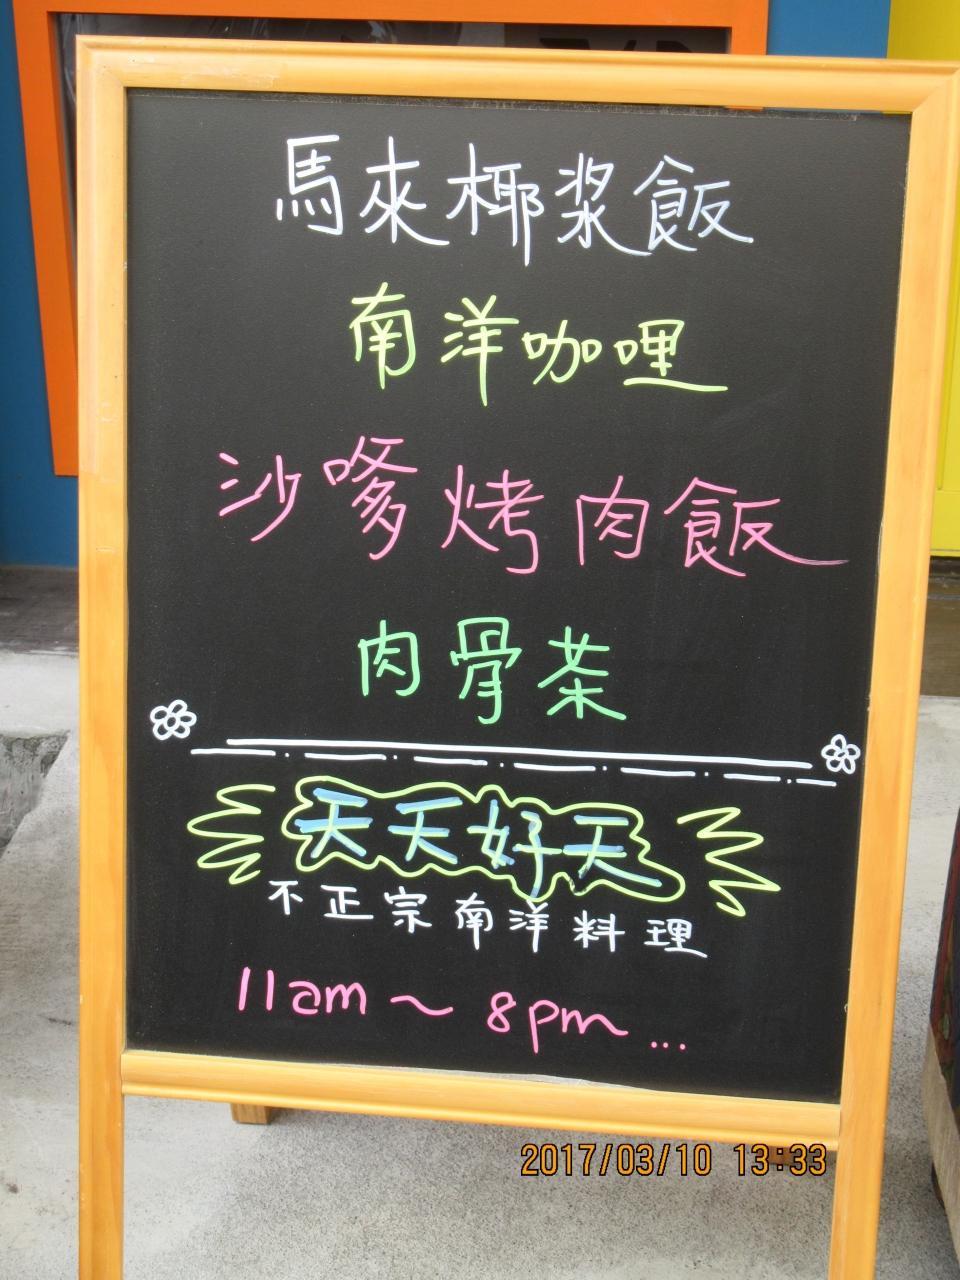 馬來椰漿飯
南洋咖哩
沙嗲烤肉飯
肉骨茶
天天好天
不正宗南洋料理
11am～8pm...
2017/03/10 13:33